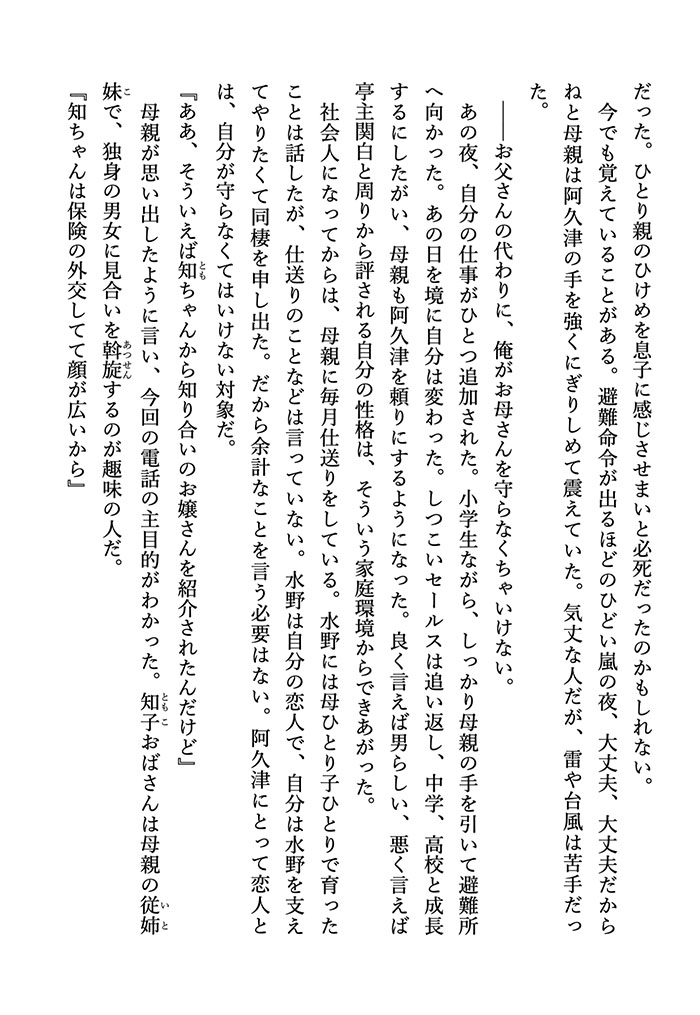 だった。ひとり親のひけめを息子に感じさせまいと必死だったのかもしれない。
　今でも覚えていることがある。避難命令が出るほどのひどい嵐の夜、大丈夫、大丈夫だから
ねと母親は阿久津の手を強くにぎりしめて震えていた。気丈な人だが、雷や台風は苦手だっ
た。
　――お父さんの代わりに、俺がお母さんを守らなくちゃいけない。
　あの夜、自分の仕事がひとつ追加された。小学生ながら、しっかり母親の手を引いて避難所
へ向かった。あの日を境に自分は変わった。しつこいセールスは追い返し、中学、高校と成長
するにしたがい、母親も阿久津を頼りにするようになった。良く言えば男らしい、悪く言えば
亭主関白と周りから評される自分の性格は、そういう家庭環境からできあがった。
　社会人になってからは、母親に毎月仕送りをしている。水野には母ひとり子ひとりで育った
ことは話したが、仕送りのことなどは言っていない。水野は自分の恋人で、自分は水野を支え
てやりたくて同棲を申し出た。だから余計なことを言う必要はない。阿久津にとって恋人と
は、自分が守らなくてはいけない対象だ。
『ああ、そういえば知ちゃんから知り合いのお嬢さんを紹介されたんだけど』
　母親が思い出したように言い、今回の電話の主目的がわかった。知子おばさんは母親の従姉
妹で、独身の男女に見合いを斡旋するのが趣味の人だ。
『知ちゃんは保険の外交してて顔が広いから』